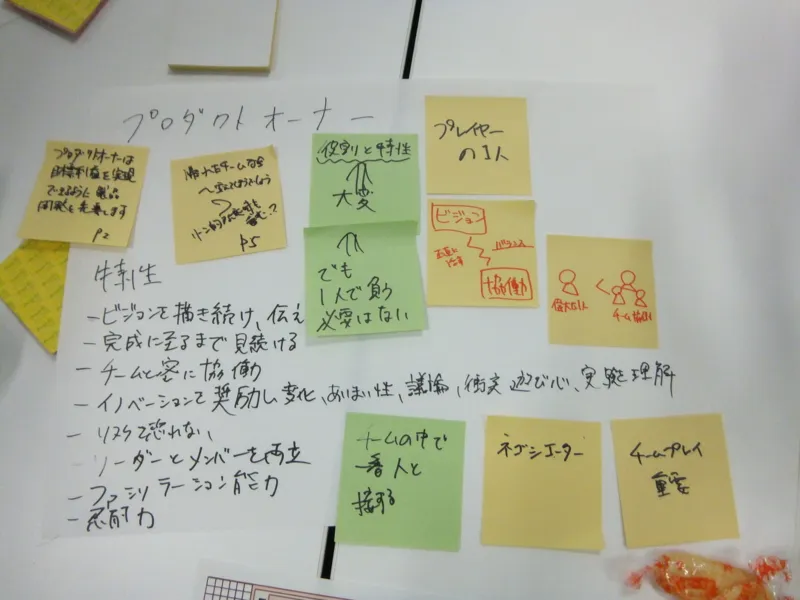 プロダクトオーナー
プロダクトオーナーは
できるように製品
開発を先導します
P2
P5
役割りと特性
大変
でも
1人で負う
必要はない
プレイヤー
の1人
ビジョン
バランス
協働
偉大な1人
チーム
特性
－ビジョンを描き続け、伝え
－完成に至るまで見続ける
－チームと客に協働
－イノベーションを奨励し変化、あいまい性、議論、衝突 遊び心、実験 理解
－リスクを恐れない
リーダーとメンバーを両立
－ファシリテーション能力
－忍耐力
チームの中で
一番人と
接する
ネゴシエーター
チームプレイ
重要